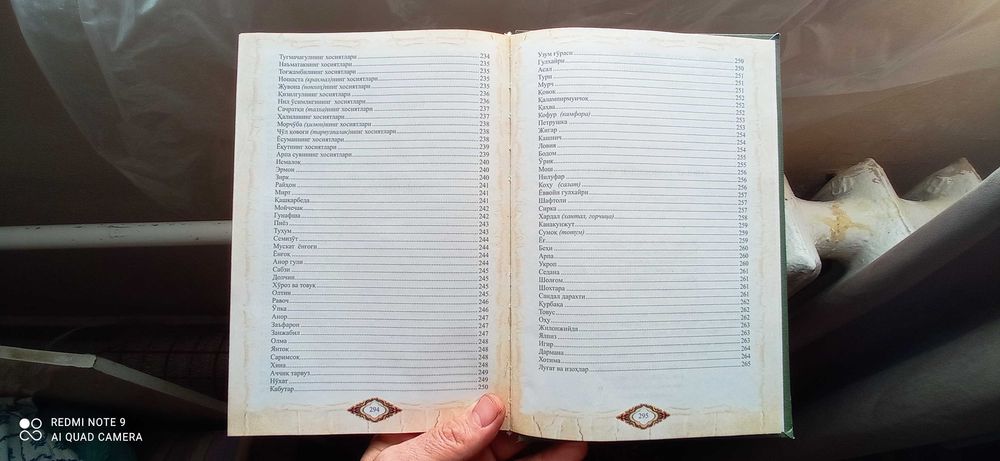 Тугмачагулнинг хосиятлари 234
Наъматакнинг хосиятлари 235
Тоғжамбилнинг хосиятлари 235
Ношаста (крахмал)нинг хосиятлари 235
Жувона (нонхоц)нинг хосиятлари 235
Қизилгулнинг хосиятлари 236
Нил ўсимлигининг хосиятлари 236
Сачратқи (талха)нинг хосиятлари 237
Ҳалиланинг хосиятлари 237
Морчўба (ҳалюн)нинг хосиятлари 238
Чўл қовоғи (тармузалак)нинг хосиятлари 238
Ёсуманнинг хосиятлари 238
Ёқутнинг хосиятлари 239
Арпа сувининг хосиятлари 239
Исмалоқ 240
Эрмон 240
Зирк 240
Райҳон 241
Мирт 241
Қашқарбеда 241
Мойчечак 242
Гунафша 242
Пиёз 243
Тухум 243
Семизўт 244
Мускат ёнғоғи 244
Ёнғоқ 244
Анор гули 244
Сабзи 245
Долчин 245
Хўроз ва товуқ 245
Олтин 245
Равоч 246
Ўпка 246
Анор 247
Заъфарон 247
Занжабил 247
Олма 248
Янтоқ 248
Саримсоқ 248
Хина 248
Аччиқ тарвуз 249
Нўхат 249
Кабутар 250
294
Узум ғўраси
Гулхайри 250
Асал 250
Турп 251
Мурч 251
Қовоқ 251
Қалампирмунчоқ 252
Қаҳва 252
Кофур (камфора) 252
Петрушка 253
Жигар 253
Кашнич 254
Ловия 254
Бодом 254
Ўрик 255
Мош 255
Нилуфар 255
Коҳу (салат) 256
Ёввойи гулхайри 256
Шафтоли 257
Сирка 257
Хардал (хантал, горчица) 258
Канакунжут 258
Сумоқ (татум) 259
Ёғ 259
Беҳи 260
Арпа 260
Укроп 260
Седана 261
Шолғом 261
Шохтара 261
Сандал дарахти 261
Қурбақа 262
Товус 262
Оҳу 262
Жилонжийда 263
Ялпиз 263
Игир 263
Дармана 264
Хотима 264
Луғат ва изоҳлар 265
295
REDMI NOTE 9
AI QUAD CAMERA